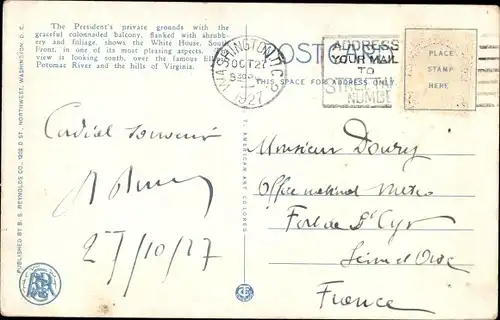 The President's private grounds with the
graceful colonnaded balcony, flanked with shrub-
ery and foliage, shows the White House, South
Front, in one of its most pleasing aspects.
view is looking south, over the famous
Potomac River and the hills of Virginia.
POSTCARD
THIS SPACE FOR ADDRESS ONLY
WASHINGTON, D.C. 2
OCT 27
1927
ADDRESS
YOUR MAIL
TO
STREET AND
NUMBER
PLACE
STAMP
HERE
PUBLISHED BY B. S. REYNOLDS CO., 1202 D ST. NORTHWEST, WASHINGTON, D. C.
C. T. AMERICAN ART COLORED
Cordial souvenir
27/10/27
Monsieur Doury
Office national Météo
Fort de St Cyr
Seine et Oise
France